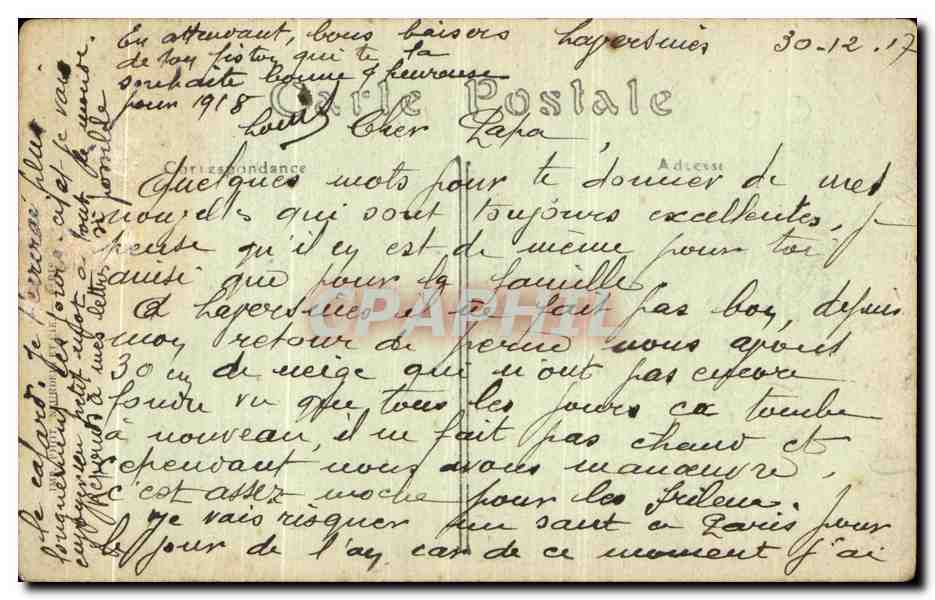 Lapersines 30-12.17
Carte Postale
Correspondance
Adresse
Cher Papa,
Quelques mots pour te donner de mes
nouvelles qui sont toujours excellentes, je
pense qu'il en est de même pour toi
ainsi que pour la famille.
A Lapersines il ne fait pas bon, depuis
mon retour de perme nous avons
30 cm de neige qui n'ont pas encore
fondu vu que tous les jours ca tombe
à nouveau, il ne fait pas chaud et
cependant nous avons manœuvre,
c'est assez moche pour les frileux.
Je vais risquer un saut a Paris pour
le jour de l'an car de ce moment j'ai
le cafard. Je t'écrirai plus
longuement ces jours-ci et je vais
envoyer un petit mot à tout le monde.
Réponds à mes lettres si possible
En attendant, bons baisers
de ton fiston qui te la
souhaite bonne & heureuse
pour 1918
Louis
CPAPHIL